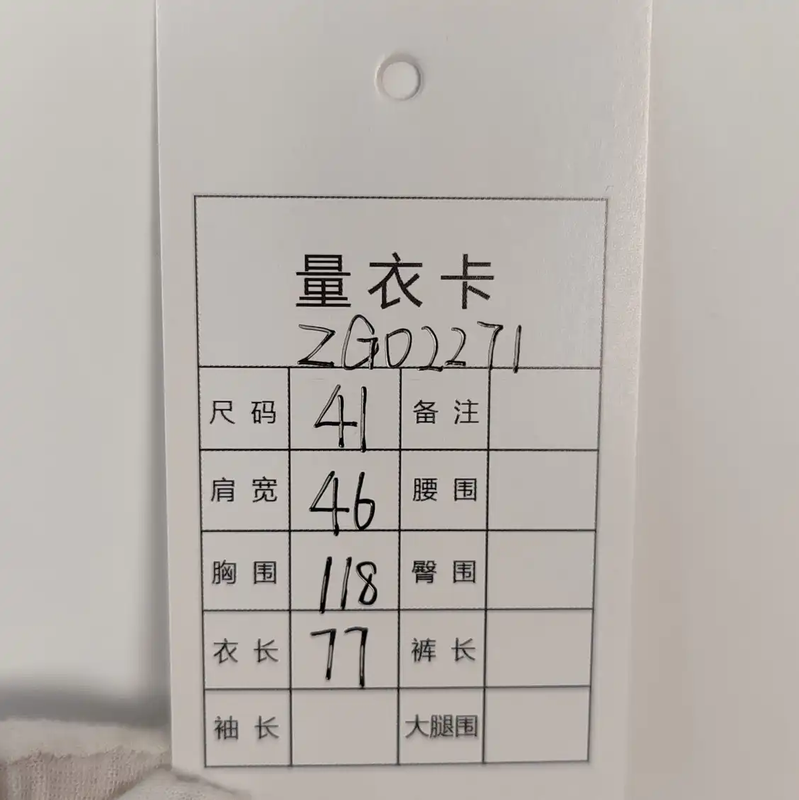 量衣卡
ZG02271
尺码 41 备注
肩宽 46 腰围
胸围 118 臀围
衣长 77 裤长
袖长 大腿围